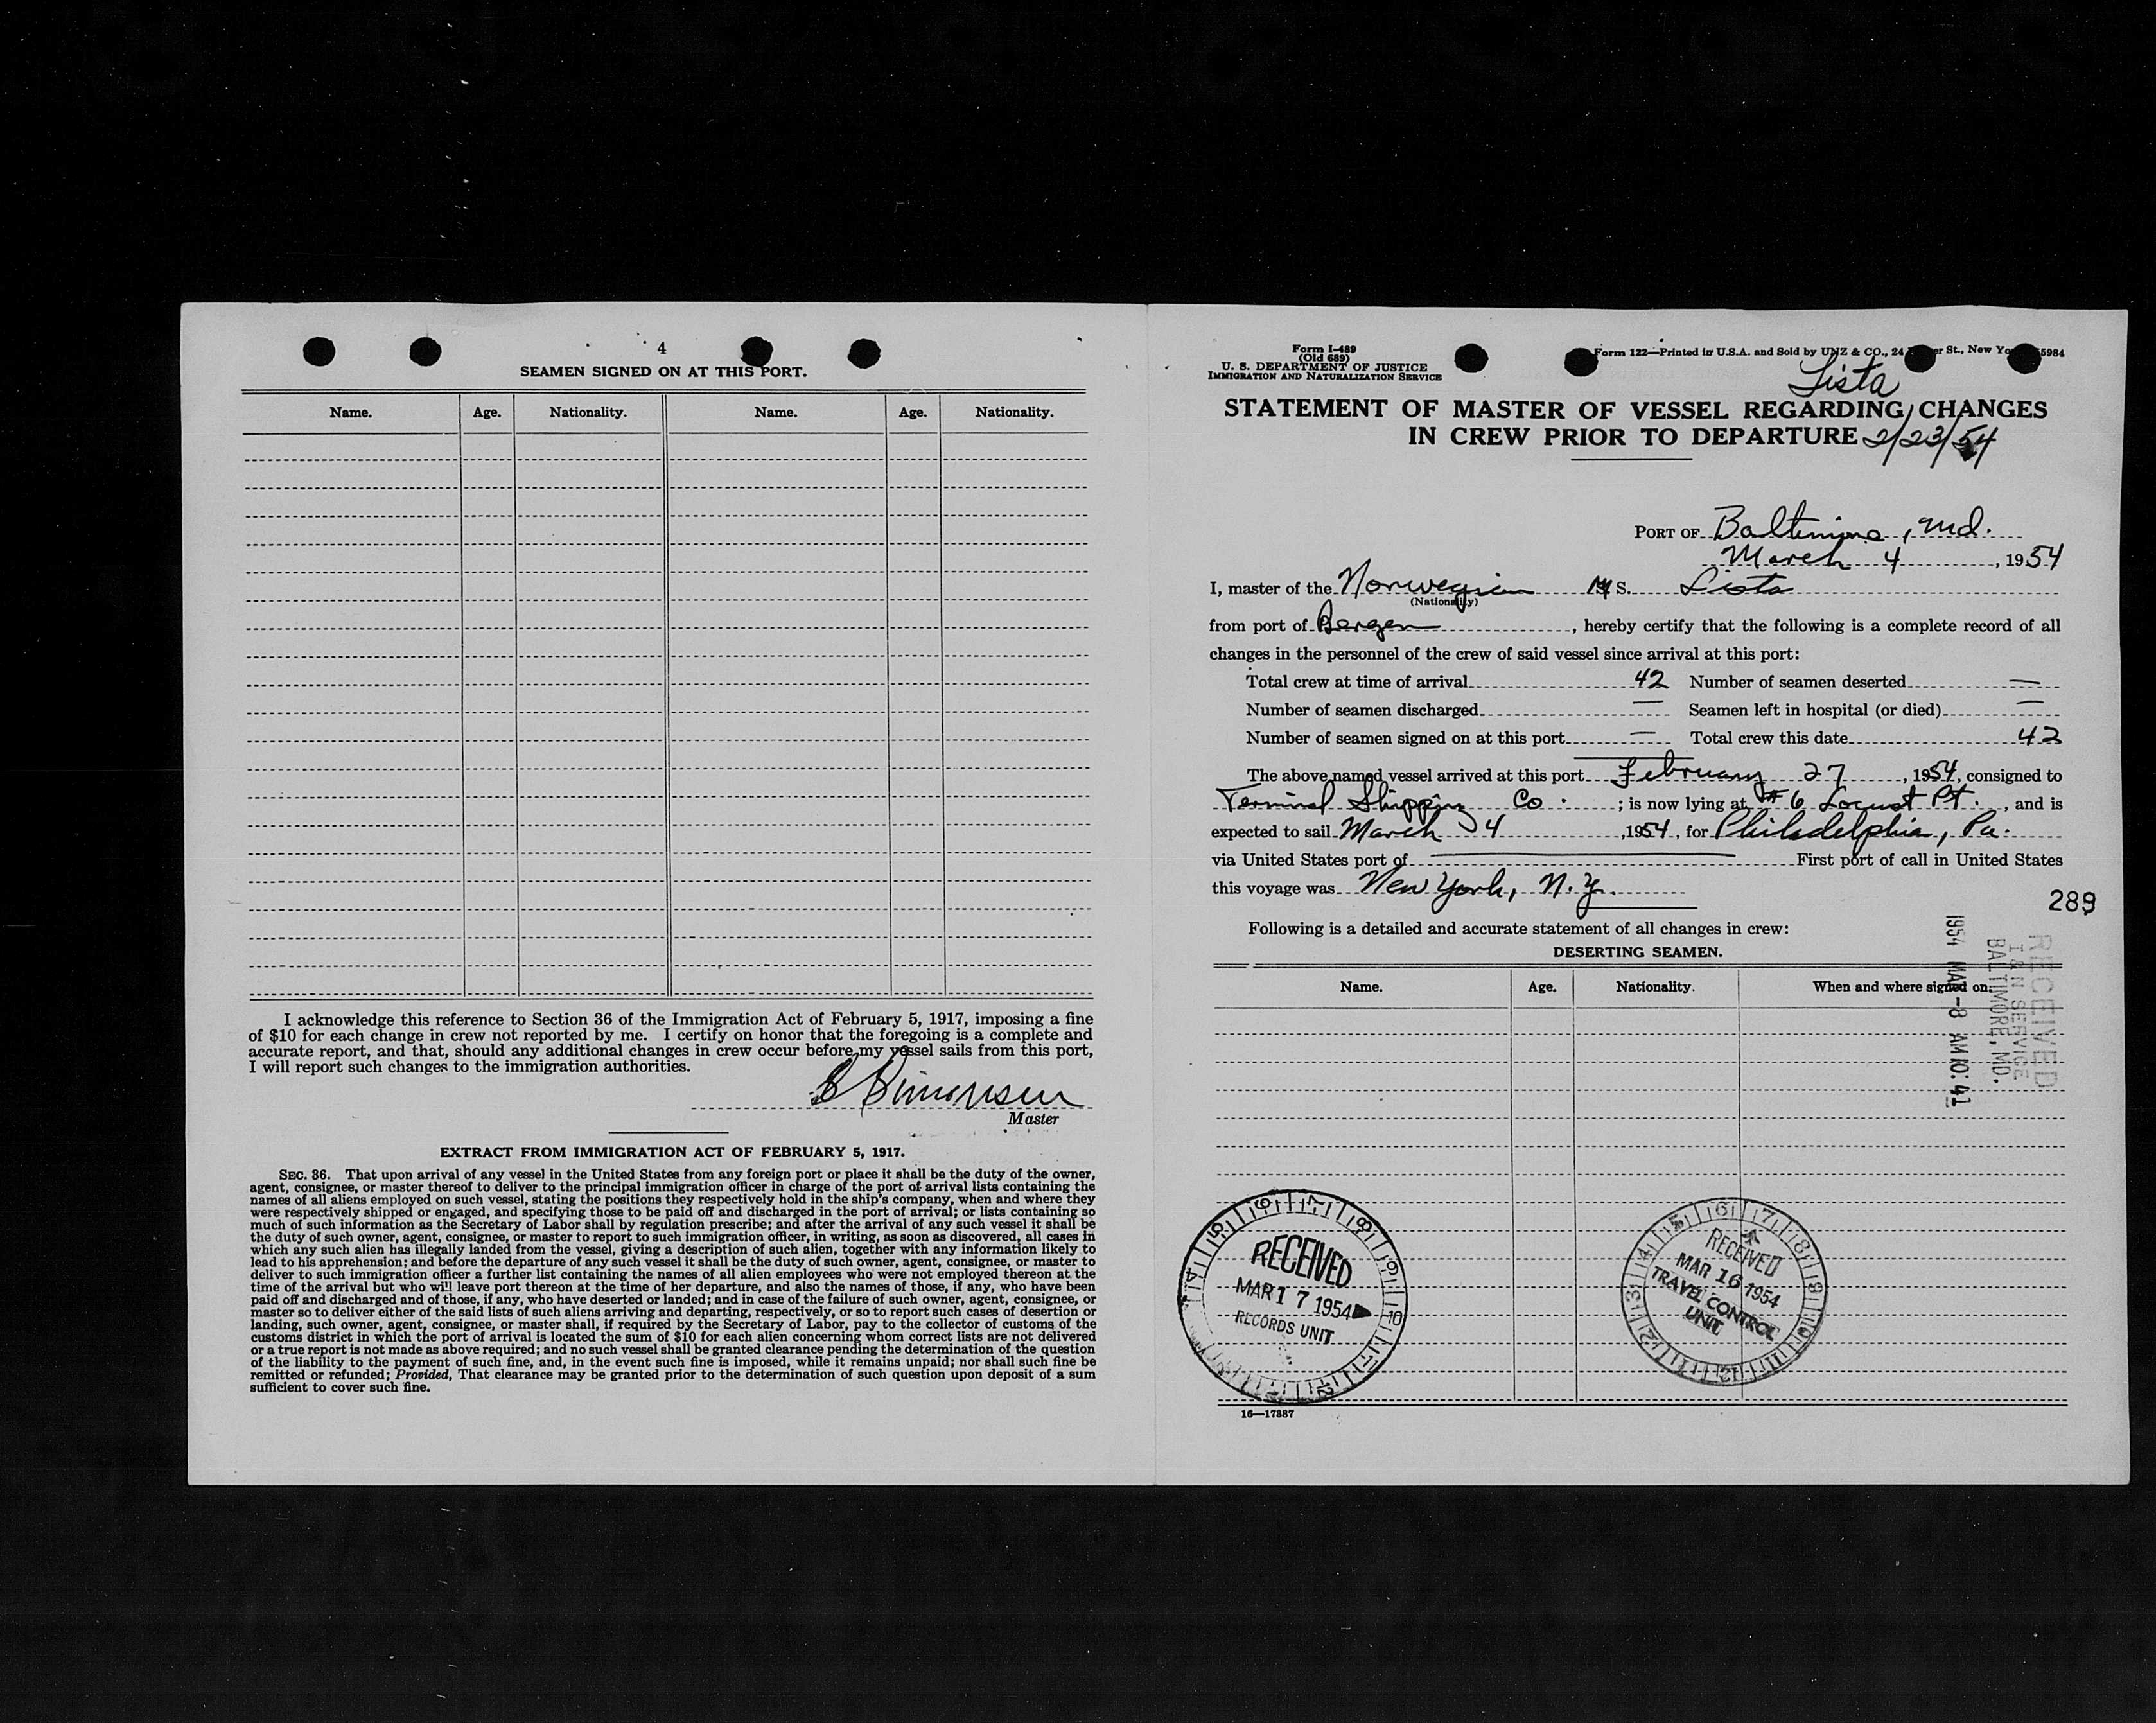 4
SEAMEN SIGNED ON AT THIS PORT.
Name. Age. Nationality. Name. Age. Nationality.
I acknowledge this reference to Section 36 of the Immigration Act of February 5, 1917, imposing a fine
of $10 for each change in crew not reported by me. I certify on honor that the foregoing is a complete and
accurate report, and that, should any additional changes in crew occur before my vessel sails from this port,
I will report such changes to the immigration authorities.
Simonsen
Master
EXTRACT FROM IMMIGRATION ACT OF FEBRUARY 5, 1917.
SEC. 36. That upon arrival of any vessel in the United States from any foreign port or place it shall be the duty of the owner,
agent, consignee, or master thereof to deliver to the principal immigration officer in charge of the port of arrival lists containing the
names of all aliens employed on such vessel, stating the positions they respectively hold in the ship's company, when and where they
were respectively shipped or engaged, and specifying those to be paid off and discharged in the port of arrival; or lists containing so
much of such information as the Secretary of Labor shall by regulation prescribe; and after the arrival of any such vessel it shall be
the duty of such owner, agent, consignee, or master to report to such immigration officer, in writing, as soon as discovered, all cases in
which any such alien has illegally landed from the vessel, giving a description of such alien, together with any information likely to
lead to his apprehension; and before the departure of any such vessel it shall be the duty of such owner, agent, consignee, or master to
deliver to such immigration officer a further list containing the names of all alien employees who were not employed thereon at the
time of the arrival but who will leave port thereon at the time of her departure, and also the names of those, if any, who have been
paid off and discharged and of those, if any, who have deserted or landed; and in case of the failure of such owner, agent, consignee, or
master so to deliver either of the said lists of such aliens arriving and departing, respectively, or so to report such cases of desertion or
landing, such owner, agent, consignee, or master shall, if required by the Secretary of Labor, pay to the collector of customs of the
customs district in which the port of arrival is located the sum of $10 for each alien concerning whom correct lists are not delivered
or a true report is not made as above required; and no such vessel shall be granted clearance pending the determination of the question
of the liability to the payment of such fine, and, in the event such fine is imposed, while it remains unpaid; nor shall such fine be
remitted or refunded; Provided, That clearance may be granted prior to the determination of such question upon deposit of a sum
sufficient to cover such fine.
Form I-489
(Old 689)
U. S. DEPARTMENT OF JUSTICE
IMMIGRATION AND NATURALIZATION SERVICE
Form 122—Printed in U.S.A. and Sold by UNZ & CO., 24 St., New 5984
Lista
STATEMENT OF MASTER OF VESSEL REGARDING CHANGES
IN CREW PRIOR TO DEPARTURE 2/23/54
PORT OF Baltimore, Md.
March 4, 1954
I, master of the Norwegian M.S. Lista
(Nationality)
from port of Bergen, hereby certify that the following is a complete record of all
changes in the personnel of the crew of said vessel since arrival at this port:
Total crew at time of arrival 42 Number of seamen deserted —
Number of seamen discharged — Seamen left in hospital (or died) —
Number of seamen signed on at this port — Total crew this date 42
The above named vessel arrived at this port February 27, 1954, consigned to
Terminal Shipping Co.; is now lying at #6 Locust Pt., and is
expected to sail March 4, 1954, for Philadelphia, Pa.
via United States port of — First port of call in United States
this voyage was New York, N.Y.
289
Following is a detailed and accurate statement of all changes in crew:
DESERTING SEAMEN.
Name. Age. Nationality. When and where signed on.
RECEIVED
I & N SERVICE
BALTIMORE, MD.
1954 MAR -8 AM 10:41
RECEIVED
MAR 17 1954
RECORDS UNIT
RECEIVED
MAR 16 1954
TRAVEL CONTROL
UNIT
16—17887